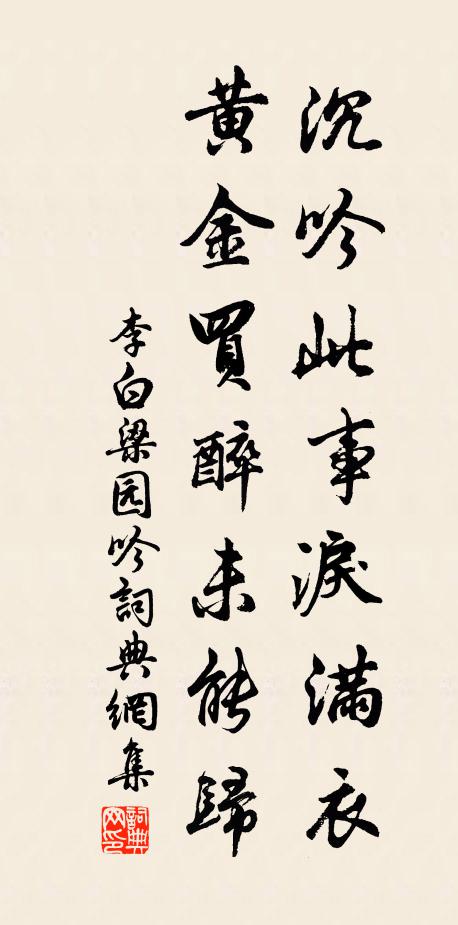 沉吟此事淚滿衣
黃金買醉未能歸
李白梁园吟詞典網集
詞典网印